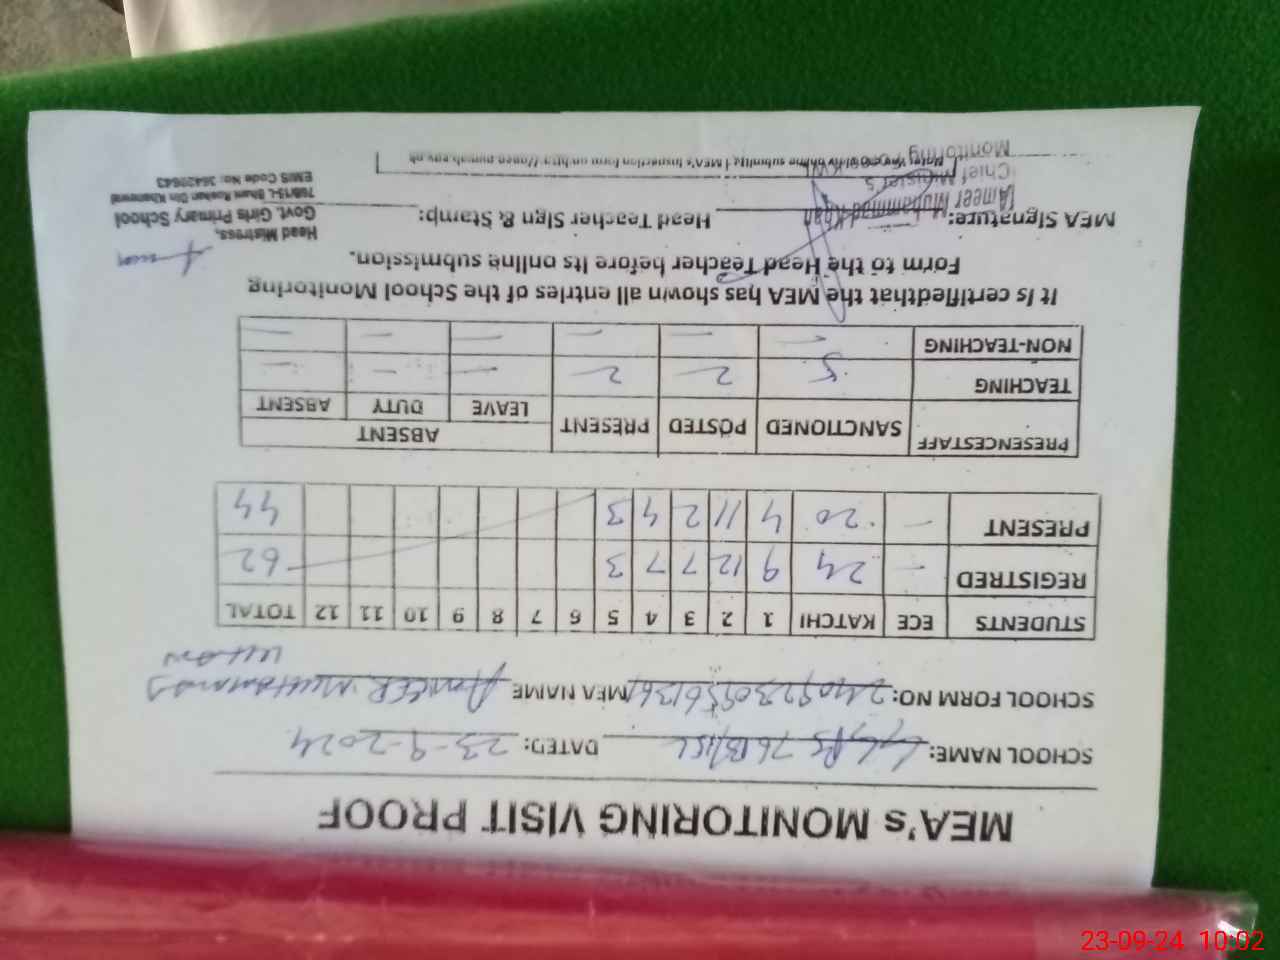 MEA's MONITORING VISIT PROOF
SCHOOL NAME: GGPS 76B/15L DATED: 23-9-2024
SCHOOL FORM NO: MEA NAME AMEER MUHAMMAD
KHAN
STUDENTS ECE KATCHI 1 2 3 4 5 6 7 8 9 10 11 12 TOTAL
REGISTRED — 24 9 12 7 7 3 62
PRESENT — 20 4 11 2 4 3 44
PRESENCESTAFF SANCTIONED POSTED PRESENT ABSENT
LEAVE DUTY ABSENT
TEACHING 5 2 2 — — —
NON-TEACHING — — — — — —
It is certifiedthat the MEA has shown all entries of the School Monitoring
Form to the Head Teacher before its online submission.
MEA Signature: Head Teacher Sign & Stamp:
Ameer Muhammad Khan
Chief Minister's
Monitoring
Head Mistress,
Govt. Girls Primary School
76B/15-L Bhani Roshan Din Khanewal
EMIS Code No: 36420643
23-09-24 10:02